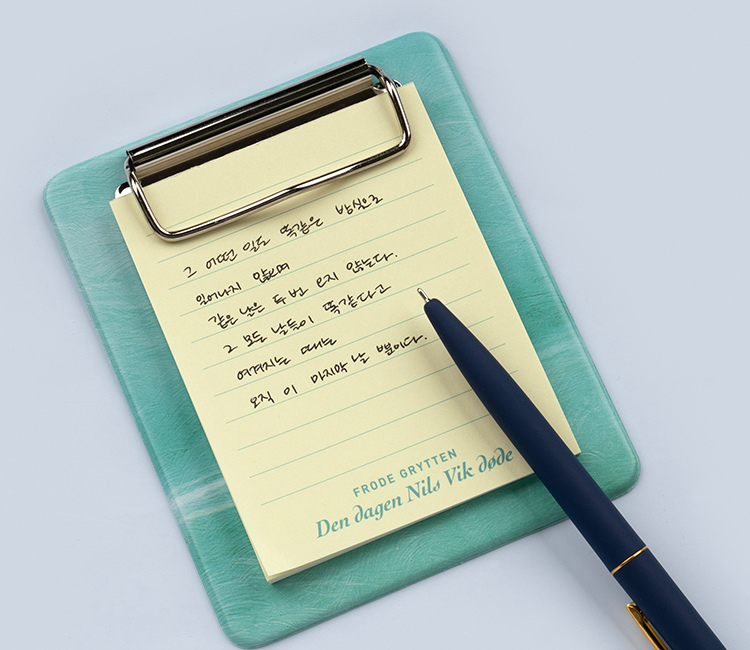 그 어떤 일도 똑같은 방식으로
일어나지 않으며
같은 날은 두 번 오지 않는다.
그 모든 날들이 똑같다고
여겨지는 때는
오직 이 마지막 날 뿐이다.
FRODE GRYTTEN
Den dagen Nils Vik døde